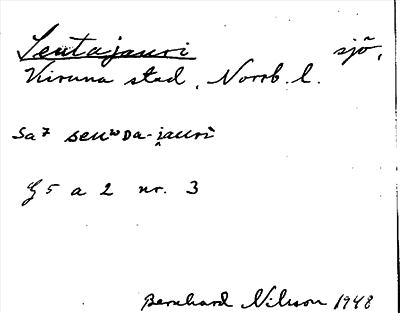 Sentajauri sjö,
Kiruna stad, Norrb. l.
Sa7
G 5 a 2 nr. 3
Bernhard Nilsson 1948